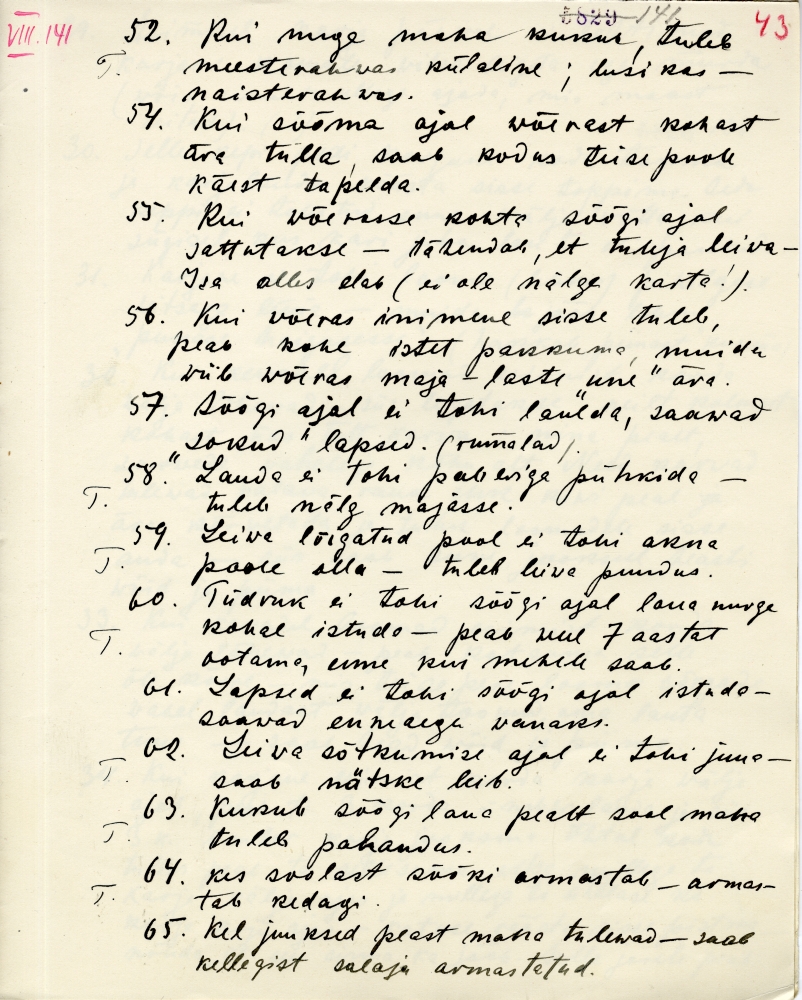 VIII. 141
1829 141
43
52. Kui nuge maha kukub, tuleb
T. meesterahwas külaline; lusikas —
naisterahwas.
54. Kui sööma ajal wõerast kohast
ära tulla, saab kodus teisepoole
käest tapelda.
55. Kui wõerasse kohta söögi ajal
sattutakse — tähendab, et tuleja leiwa-
Isa alles elab (ei ole nälga karta!).
56. Kui võeras inimene sisse tuleb,
peab kohe istet pakkuma, muidu
wiib wõeras maja-laste „une" ära.
57. Söögi ajal ei tohi laulda, saawad
„sokud" lapsed. (rumalad).
58. Lauda ei tohi paberiga pühkida —
T. tuleb nälg majasse.
59. Leiwa lõigatud pool ei tohi akna
T. poole olla — tuleb leiva puudus.
60. Tüdruk ei tohi söögi ajal laua nurga
T. kohal istuda — peab weel 7 aastat
ootama, enne kui mehele saab.
61. Lapsed ei tohi söögi ajal istuda —
saawad enneaegu wanaks.
62. Leiva sõtkumise ajal ei tohi juua —
T. saab nätske leib.
63. Kukub söögi laua pealt sool maha
T. tuleb pahandus.
64. Kes soolast sööki armastab — armas-
T. tab kedagi.
65. Kel juuksed peast maha tulewad — saab
kellegist salaja armastatud.